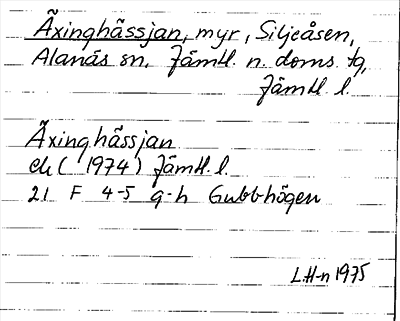 Äxinghässjan, myr, Siljeåsen,
Alanäs sn. Jämtl. n. doms. tg,
Jämtl. l.
Äxinghässjan
ek ( 1974) Jämtl. l.
21 F 4-5 g-h Gubbhögen
L.H-n 1975